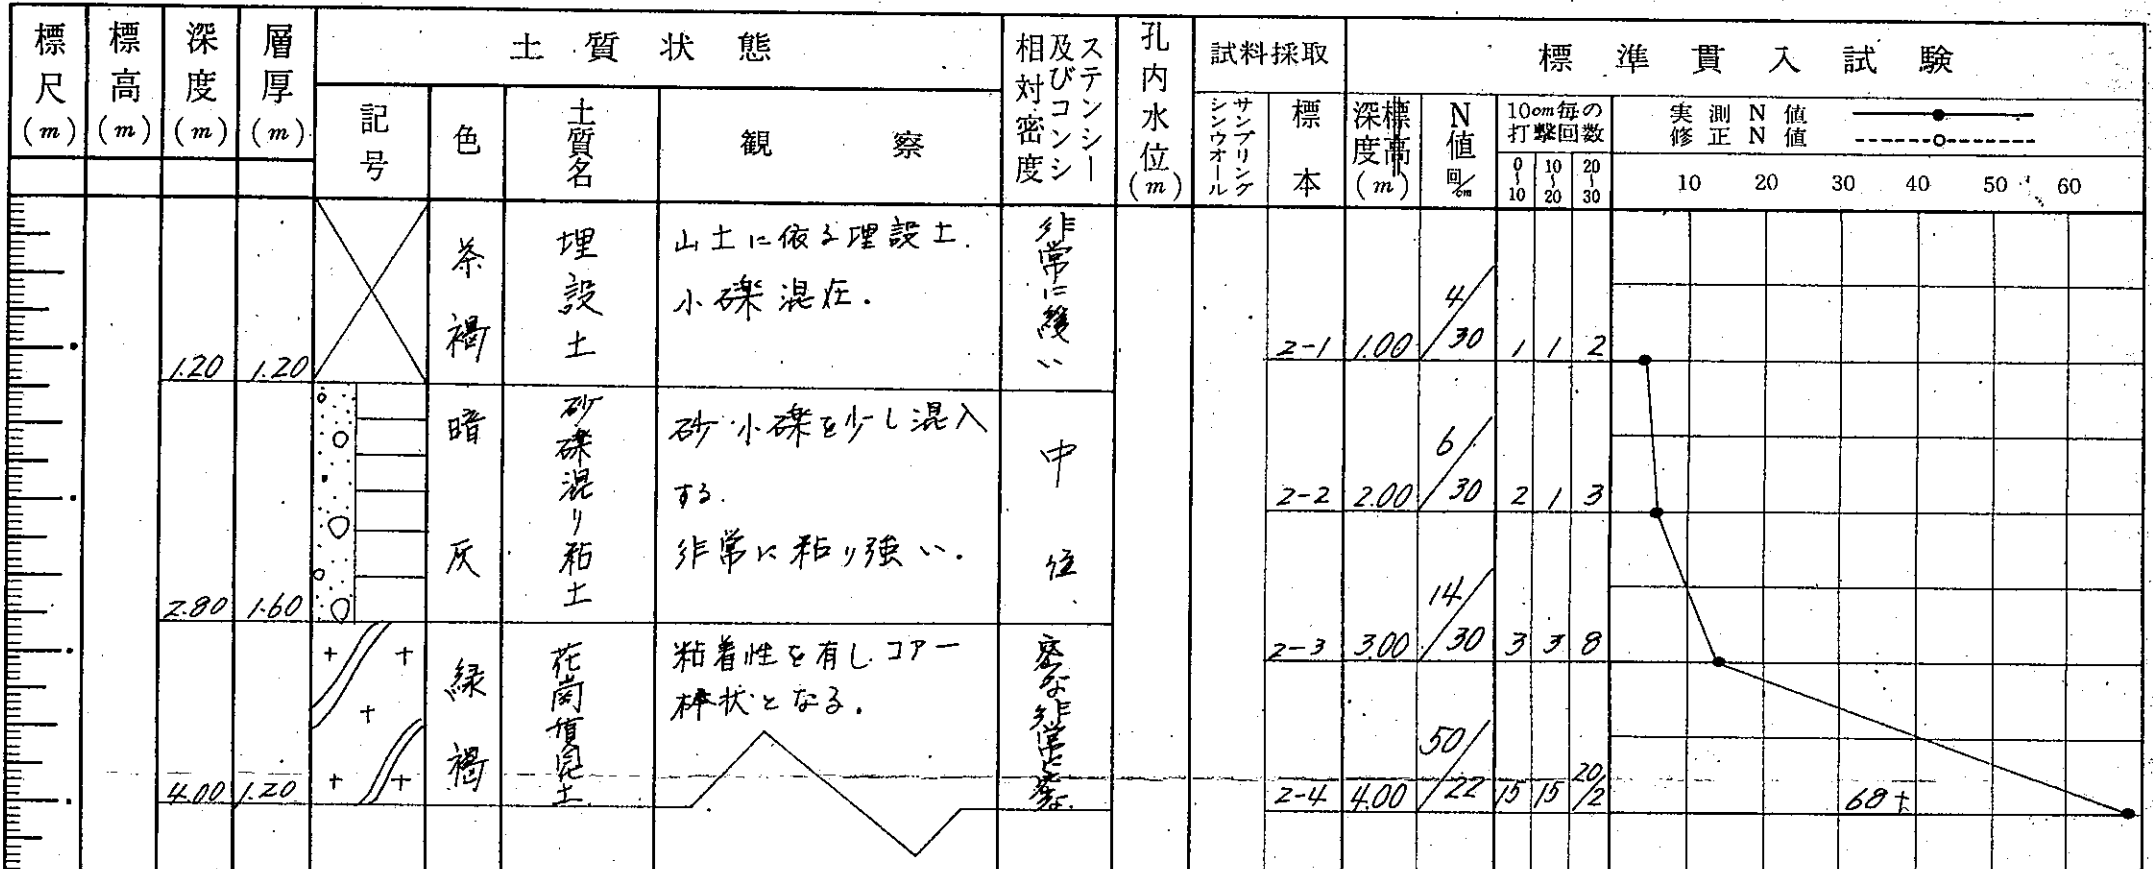 標尺(m)
標高(m)
深度(m)
層厚(m)
土質状態
記号
色
土質名
観察
相対密度及びコンシステンシー
孔内水位(m)
試料採取
サンプリングシンウオール
標本
標準貫入試験
深度標高(m)
N値 回/cm
10cm毎の打撃回数
0~10
10~20
20~30
実測N値
修正N値
10 20 30 40 50 60
1.20 1.20
茶褐
埋設土
山土に依る埋設土.
小礫混在.
非常に緩い
2-1 1.00 4/30 1 1 2
2.80 1.60
暗灰
砂礫混り粘土
砂小礫を少し混入
する.
非常に粘り強い.
中位
2-2 2.00 6/30 2 1 3
2-3 3.00 14/30 3 3 8
4.00 1.20
緑褐
花崗質風化土
粘着性を有しコアー
棒状となる.
密な非常に密な
2-4 4.00 50/22 15 15 20/2
68+